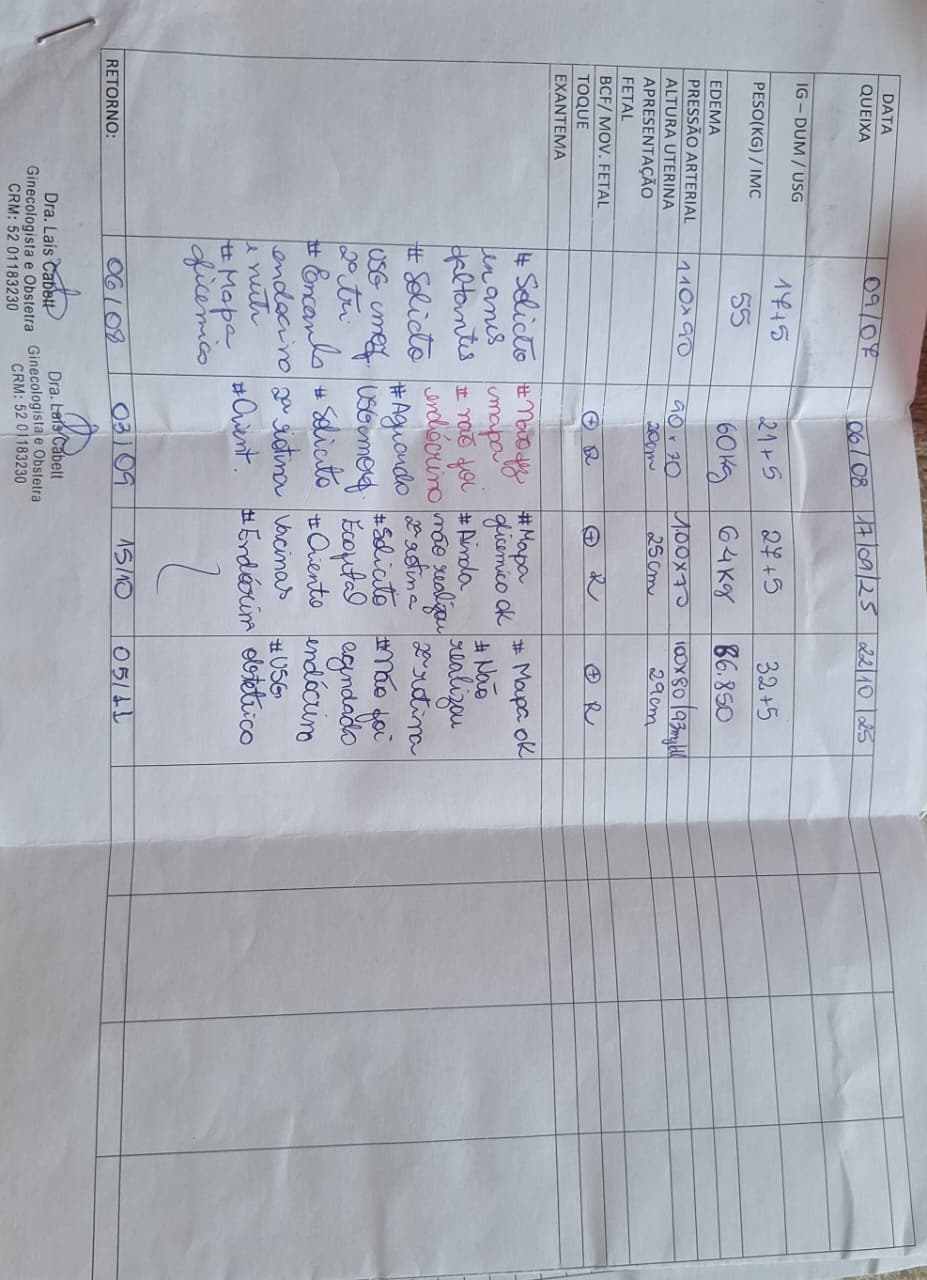 DATA 09/07 06/08 17/09/25 22/10/25
QUEIXA
IG – DUM / USG 17+5 21+5 27+5 32+5
PESO(KG) / IMC 55 60Kg 64Kg 86.850
EDEMA
PRESSÃO ARTERIAL 110x90 90x70 100x70 110x80 / 93mg/dl
ALTURA UTERINA 20cm 25cm 29cm
APRESENTAÇÃO
FETAL
BCF/ MOV. FETAL ⊕ R ⊕ R ⊕ R
TOQUE
EXANTEMA
# Solicito
exames
faltantes
# Solicito
USG morf
2º tri.
# Encaminho
endocrino
e nutri
# Mapa
glicemico
# não fez
mapa
# não foi
endócrino
# Aguardo
USG morf.
# Solicito
2ª rotina
# Orient.
# Mapa
glicemico ok
# Ainda
não realizou
2ª rotina
# Solicito
Ecofetal
# Oriento
vacinas
# Endócrim
# Mapa ok
# Não
realizou
2ª rotina
# Não foi
agendado
endócrim
# USG
obstétrico
RETORNO: 06/08 03/09 15/10 05/11
Dra. Laís Cabett
Ginecologista e Obstetra
CRM: 52 01183230
Dra. Laís Cabett
Ginecologista e Obstetra
CRM: 52 01183230